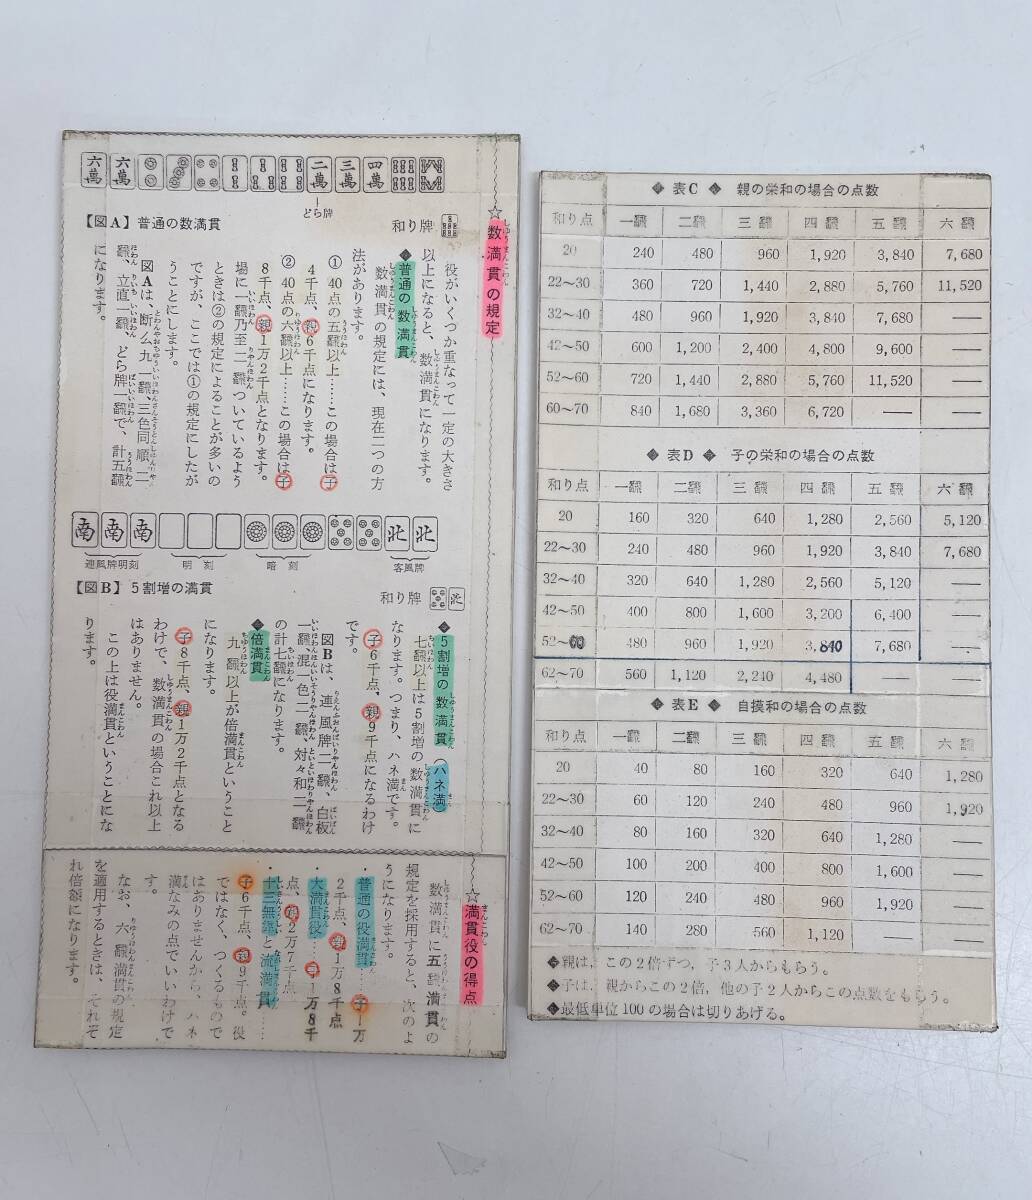 六萬 六萬 二萬 三萬 四萬
どら牌
【図A】普通の数満貫
和り牌
☆数満貫の規定
役がいくつか重なって一定の大きさ
以上になると、数満貫になります。
◆普通の数満貫
数満貫の規定には、現在二つの方
法があります。
① 40点の五飜以上……この場合は子
4千点、親6千点になります。
② 40点の六飜以上……この場合は子
8千点、親1万2千点となります。
場に一飜乃至二飜ついているよう
ときは②の規定によることが多いの
ですが、ここでは①の規定にしたが
うことにします。
図Aは、断么九一飜、三色同順一
飜、立直一飜、どら牌一飜で、計五飜
になります。
南 南 南 北 北
連風牌明刻 明刻 暗刻 客風牌
【図B】5割増の満貫
和り牌 北
◆5割増の数満貫(ハネ満)
七飜以上は5割増の数満貫に
なります。つまり、ハネ満です。
子6千点、親9千点になるわけ
です。
図Bは、連風牌一飜、白板
一飜、混一色一飜、対々和二飜
の計七飜になります。
◆倍満貫
九飜以上が倍満貫ということ
になります。
子8千点、親1万2千点となる
わけで、数満貫の場合これ以上
はありません。
この上は役満貫ということにな
ります。
☆満貫役の得点
数満貫に五飜満貫の
規定を採用すると、次のよ
うになります。
・普通の役満貫……子1万
2千点、親1万8千点
・大満貫役……子1万8千
点、親2万7千点
・十三無靠と流満貫……
子6千点、親9千点。役
ではなく、つくるもので
はありませんから、ハネ
満なみの点でいいわけで
す。
なお、六飜満貫の規定
を適用するときは、それぞ
れ倍額になります。
◆ 表C ◆ 親の栄和の場合の点数
和り点 一飜 二飜 三飜 四飜 五飜 六飜
20 240 480 960 1,920 3,840 7,680
22〜30 360 720 1,440 2,880 5,760 11,520
32〜40 480 960 1,920 3,840 7,680 ——
42〜50 600 1,200 2,400 4,800 9,600 ——
52〜60 720 1,440 2,880 5,760 11,520 ——
60〜70 840 1,680 3,360 6,720 —— ——
◆ 表D ◆ 子の栄和の場合の点数
和り点 一飜 二飜 三飜 四飜 五飜 六飜
20 160 320 640 1,280 2,560 5,120
22〜30 240 480 960 1,920 3,840 7,680
32〜40 320 640 1,280 2,560 5,120 ——
42〜50 400 800 1,600 3,200 6,400 ——
52〜60 480 960 1,920 3,840 7,680 ——
62〜70 560 1,120 2,240 4,480 —— ——
◆ 表E ◆ 自摸和の場合の点数
和り点 一飜 二飜 三飜 四飜 五飜 六飜
20 40 80 160 320 640 1,280
22〜30 60 120 240 480 960 1,920
32〜40 80 160 320 640 1,280 ——
42〜50 100 200 400 800 1,600 ——
52〜60 120 240 480 960 1,920 ——
62〜70 140 280 560 1,120 —— ——
◆親は、この2倍ずつ、子3人からもらう。
◆子は、親からこの2倍、他の子2人からこの点数をもらう。
◆最低単位100の場合は切りあげる。